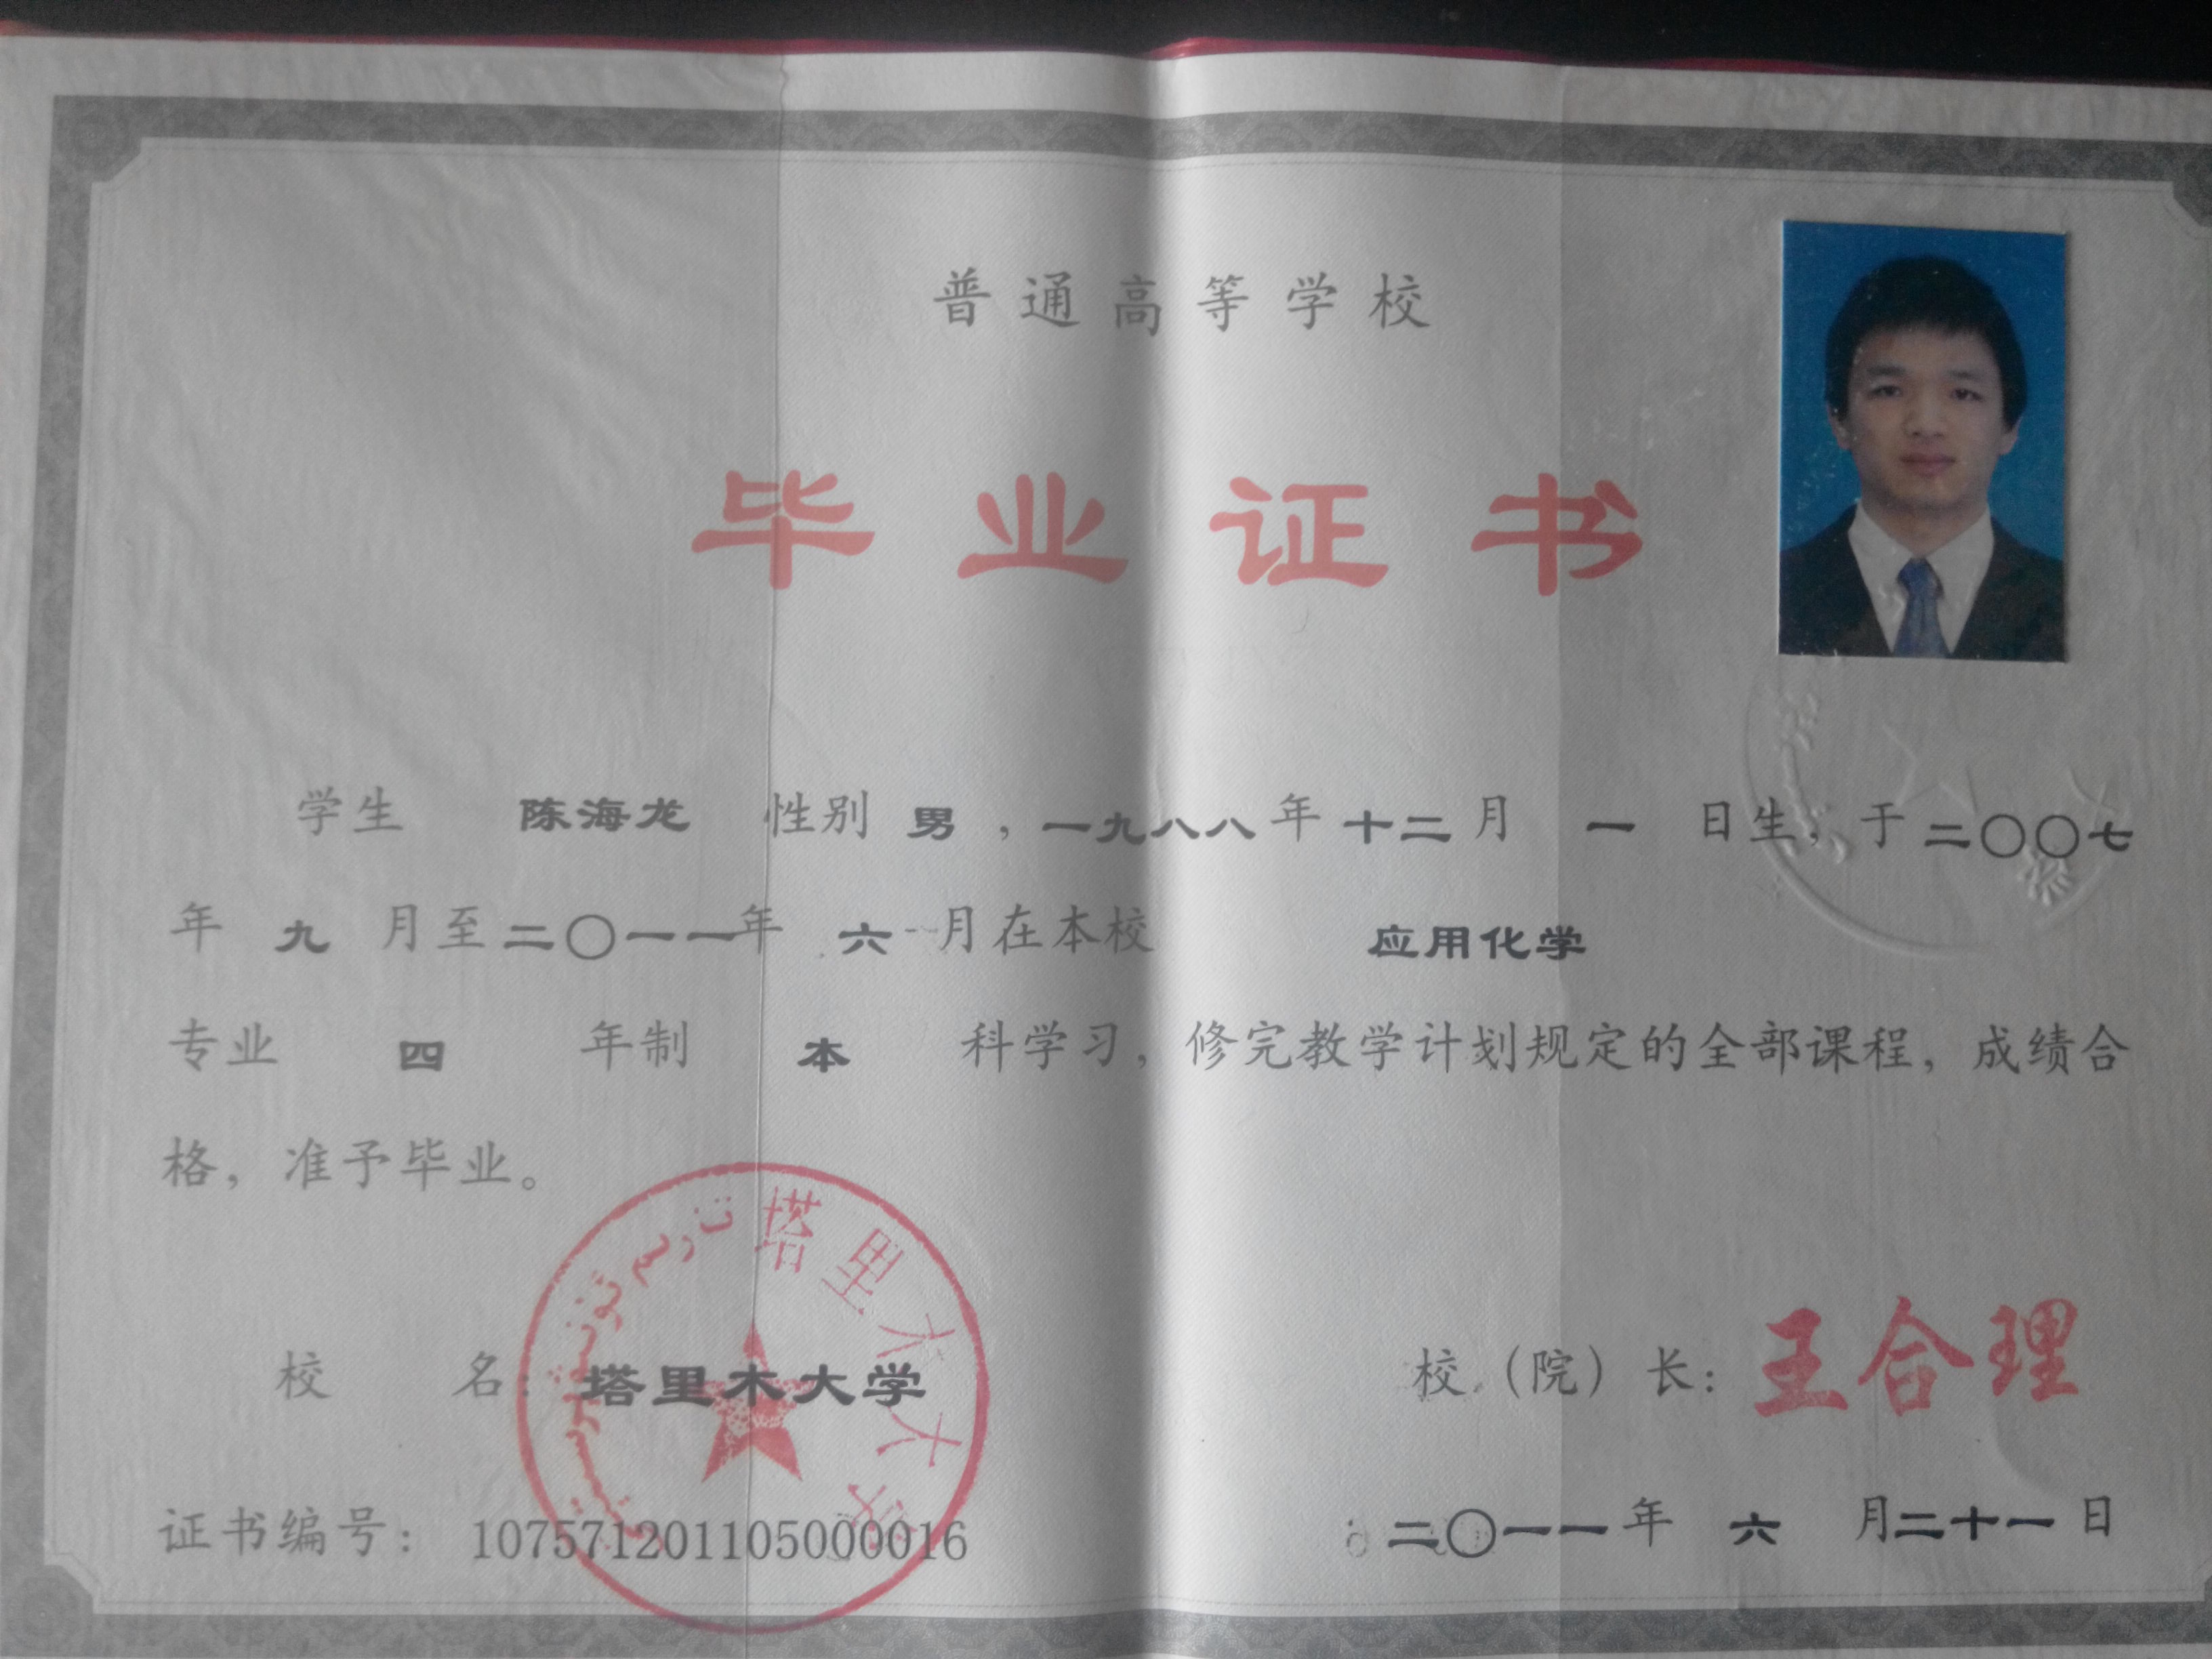 普通高等学校
毕业证书
学生 陈海龙 性别 男，一九八八年十二月 一 日生，于二〇〇七
年 九 月至二〇一一年 六 月在本校 应用化学
专业 四 年制 本 科学习，修完教学计划规定的全部课程，成绩合
格，准予毕业。
塔里木大学
校 名：塔里木大学
校（院）长：王合理
证书编号：107571201105000016
二〇一一年 六 月二十一日